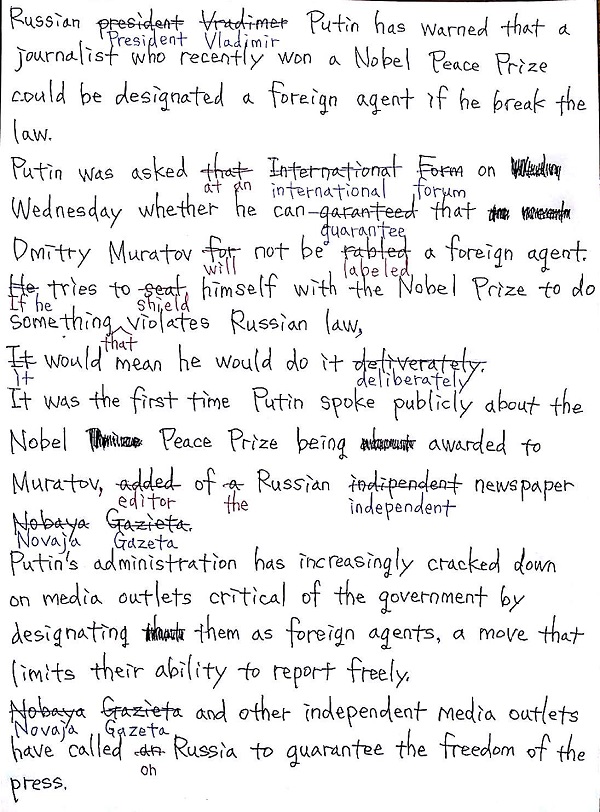 Russian president Vradimer Putin has warned that a
President Vladimir
journalist who recently won a Nobel Peace Prize
could be designated a foreign agent if he break the
law.
Putin was asked that International Form on
at an international forum
Wednesday whether he can garanteed that
guarantee
Dmitry Muratov for not be rabled a foreign agent.
will labeled
He tries to seat himself with the Nobel Prize to do
If he shield
something violates Russian law,
that
It would mean he would do it deliverately.
it deliberately
It was the first time Putin spoke publicly about the
Nobel Peace Prize being awarded to
Muratov, added of a Russian indipendent newspaper
editor the independent
Nobaya Gazieta.
Novaja Gazeta
Putin's administration has increasingly cracked down
on media outlets critical of the government by
designating them as foreign agents, a move that
limits their ability to report freely.
Nobaya Gazieta and other independent media outlets
Novaja Gazeta
have called an Russia to guarantee the freedom of the
on
press.